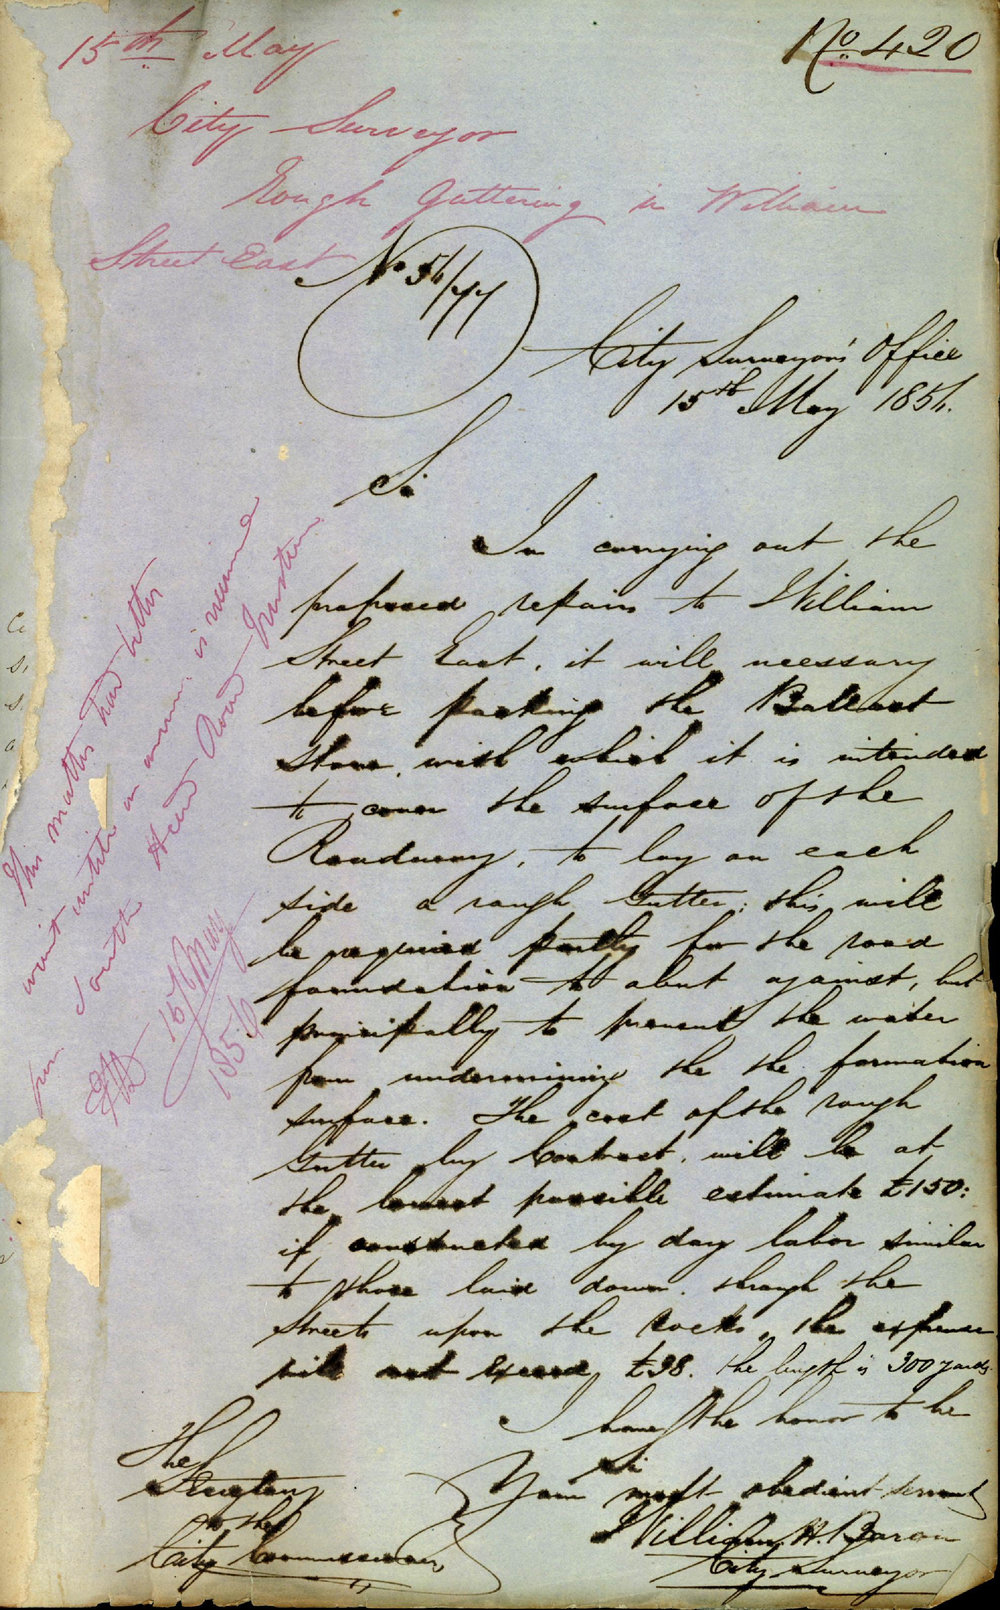 No 420
15th May
City Surveyor
Rough Guttering in William
Street East
No 56/77
City Surveyors' Office
15th May 1856.
Sir
In carrying out the
proposed repairs to William
Street East, it will necessary
before packing the Ballast
stone, with which it is intended
to cover the surface of the
Roadway, to lay on each
side a rough Gutter; this will
be required partly for the road
foundation to abut against, but
principally to prevent the water
from undermining the the formation
surface. The cost of the rough
Gutter by Contract, will be at
the lowest possible estimate £150:
if constructed by day labor similar
to those laid down through the
Streets upon the Rocks, the expense
will not exceed £98. the length is 300 yards.
I have the honor to be
Sir
Your most obedient servant
William H. Baron
City Surveyor
The
Secretary
to the
City Commissioners
This matter had better
wait until an answer is received
from South Head Road Trustees.
15th May
1856